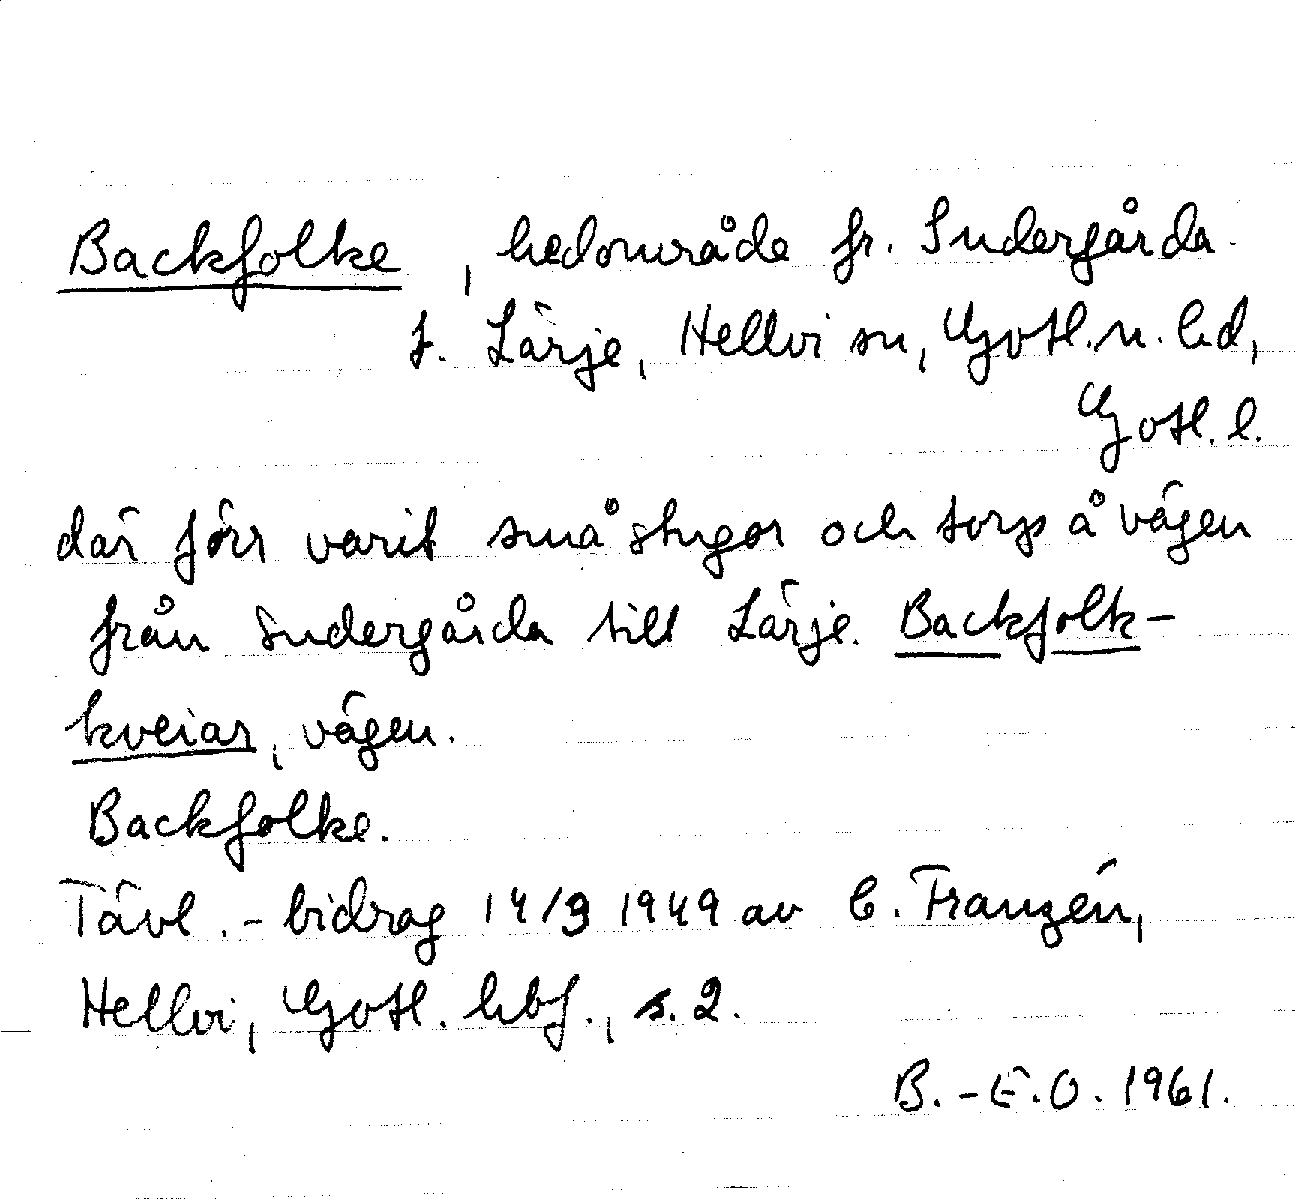 Backfolke, hedområde fr. Sudergårda
t. Lärje, Hellvi sn, Gotl. n. hd,
Gotl. l.
där förr varit små stugor och torp å vägen
från Sudergårda till Lärje. Backfolk-
kveiar, vägen.
Backfolke.
Tävl.-bidrag 14/9 1949 av C. Franzén,
Hellvi, Gotl. hbf., s. 2.
B.-E.O. 1961.